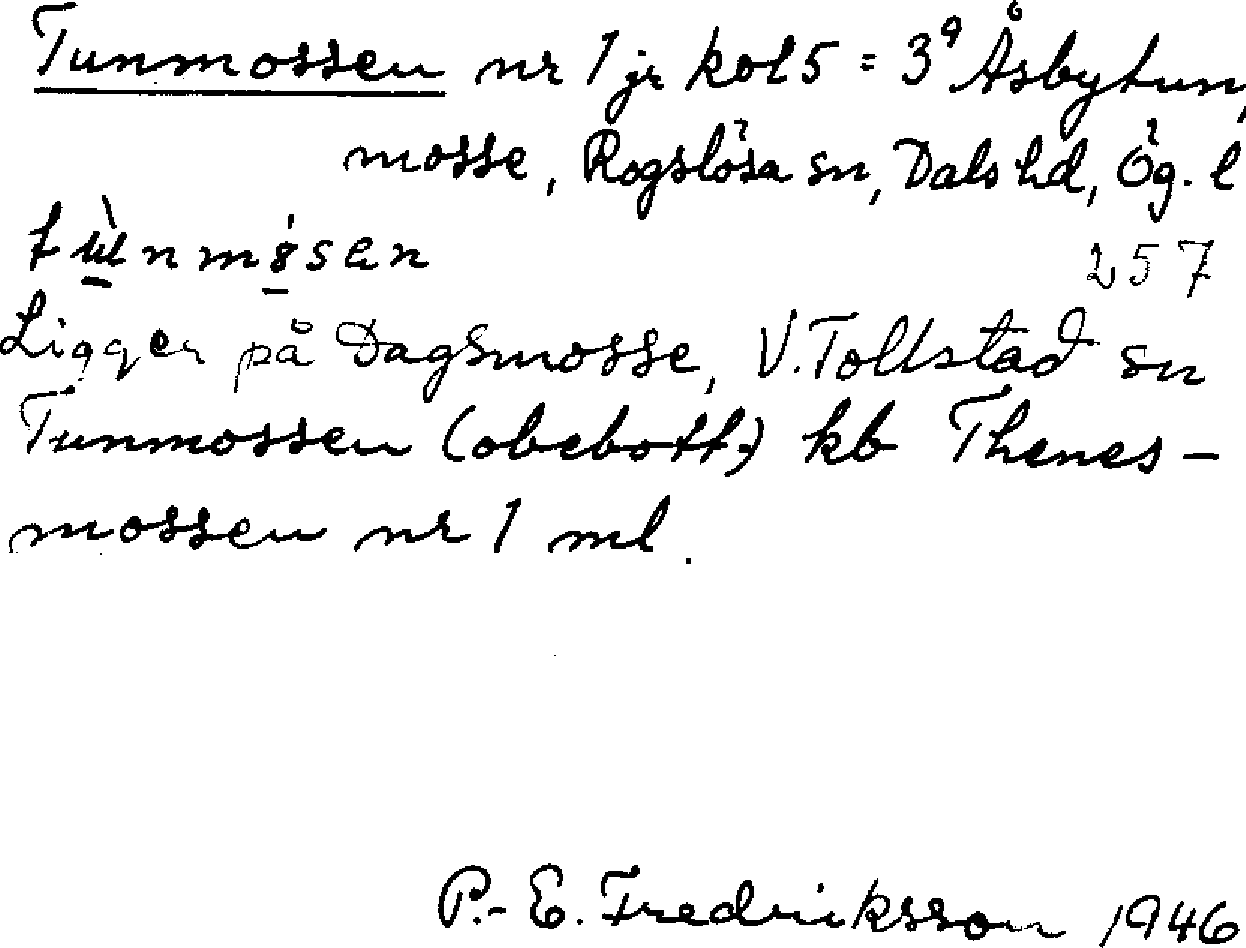 Tunmossen nr 1 jr kol 5 = 3⁹ Åsbytun,
mosse, Rogslösa sn, Dals hd, Ög. l
257
Ligger på Dagsmosse, V. Tollstad sn
Tunmossen (obebott.) kb Thenes-
mossen nr 1 ml.
P.-E. Fredriksson 1946